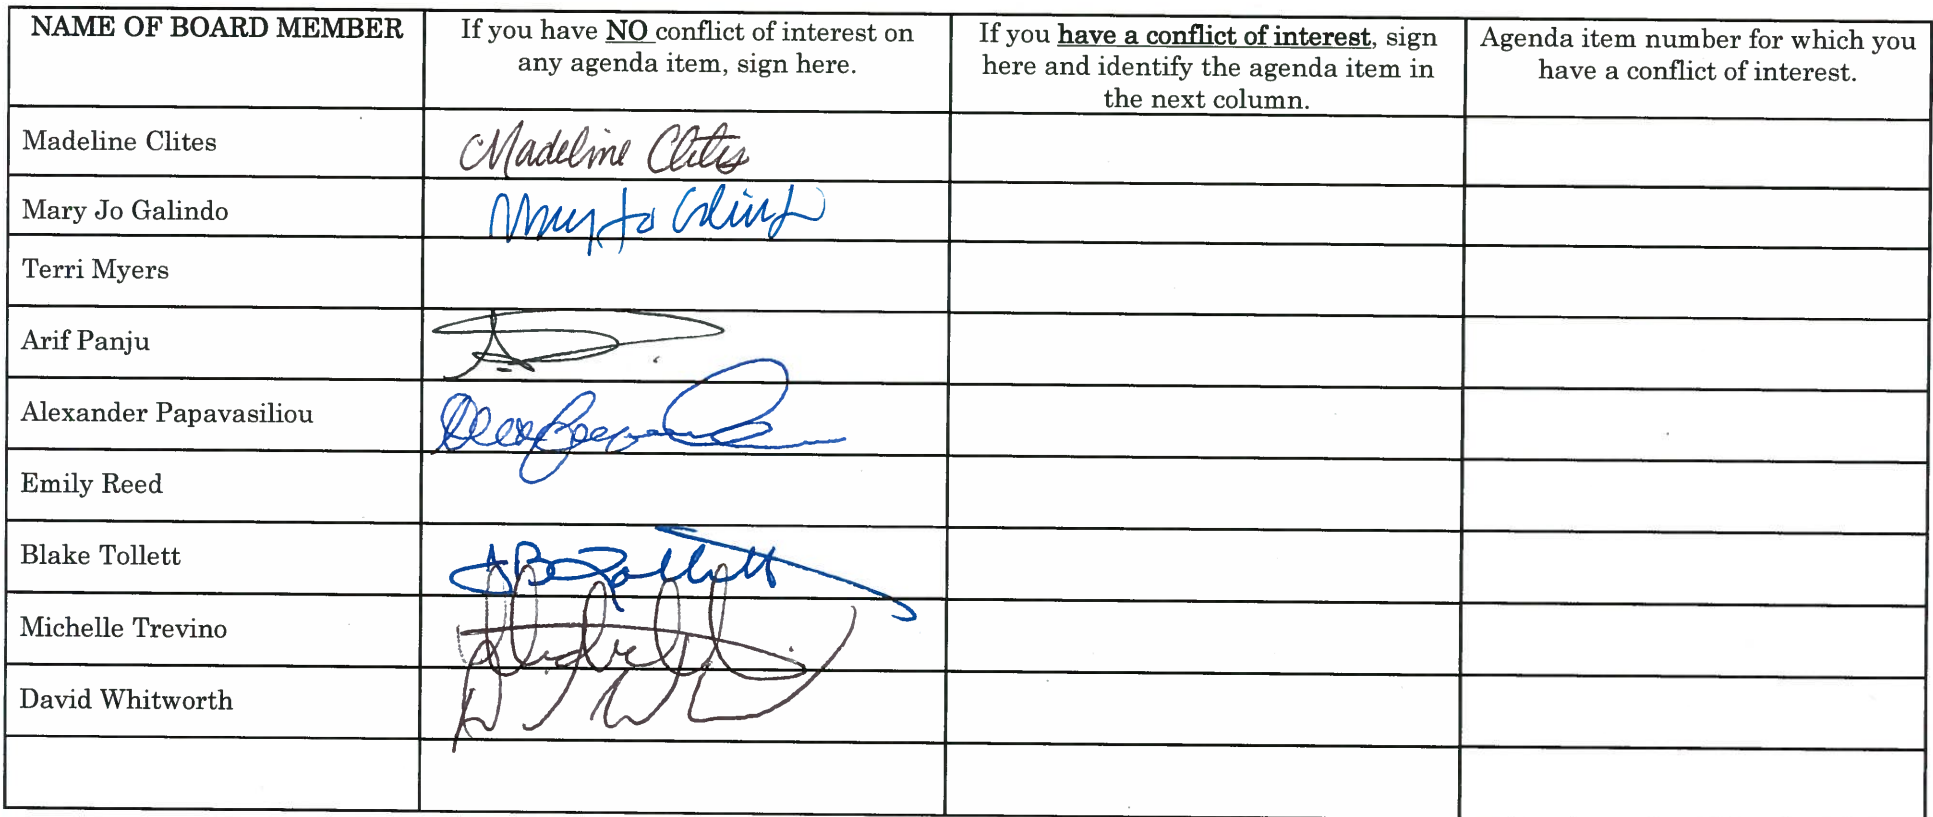 NAME OF BOARD MEMBER
If you have NO conflict of interest on
any agenda item, sign here.
If you have a conflict of interest, sign
here and identify the agenda item in
the next column.
Agenda item number for which you
have a conflict of interest.
Madeline Clites
Madeline Clites
Mary Jo Galindo
Mary Jo Galindo
Terri Myers
Arif Panju
Alexander Papavasiliou
Emily Reed
Blake Tollett
JBTollett
Michelle Trevino
David Whitworth